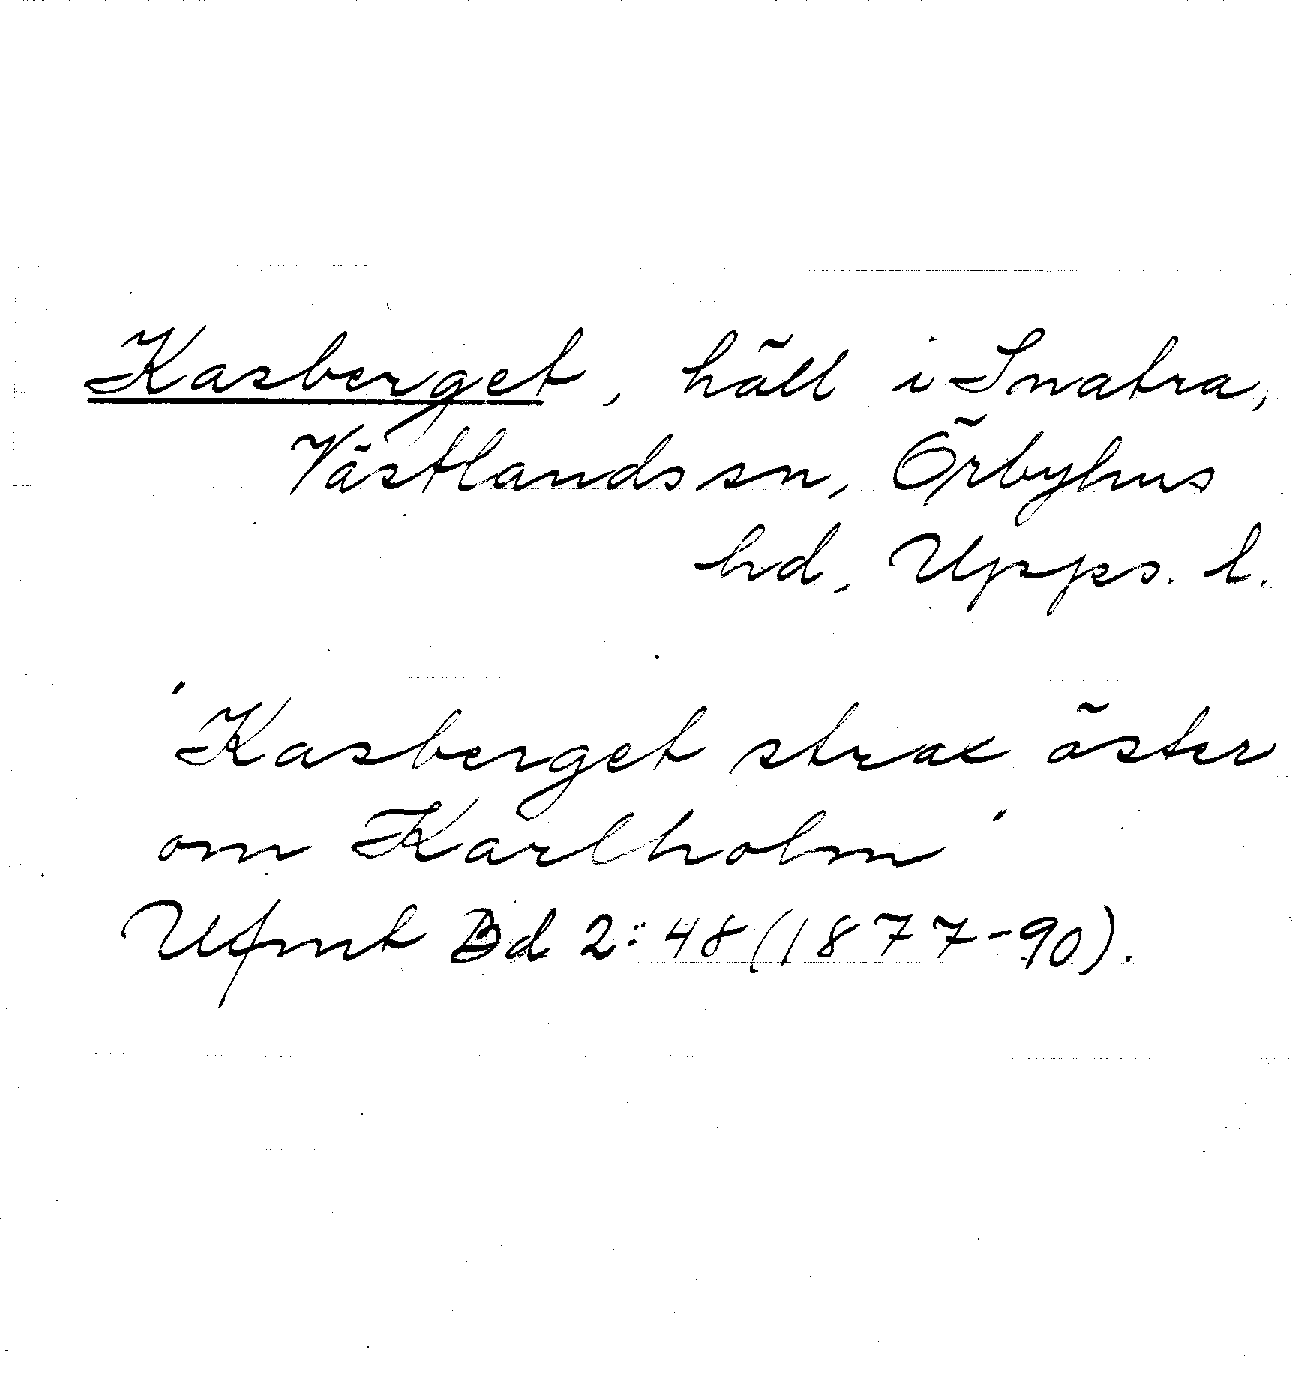 Kasberget, häll i Snatra,
Västlands sn, Örbyhus
hd, Upps. l.
"Kasberget strax öster
om Karlholm"
Ufmt Bd 2:48 (1877-90).